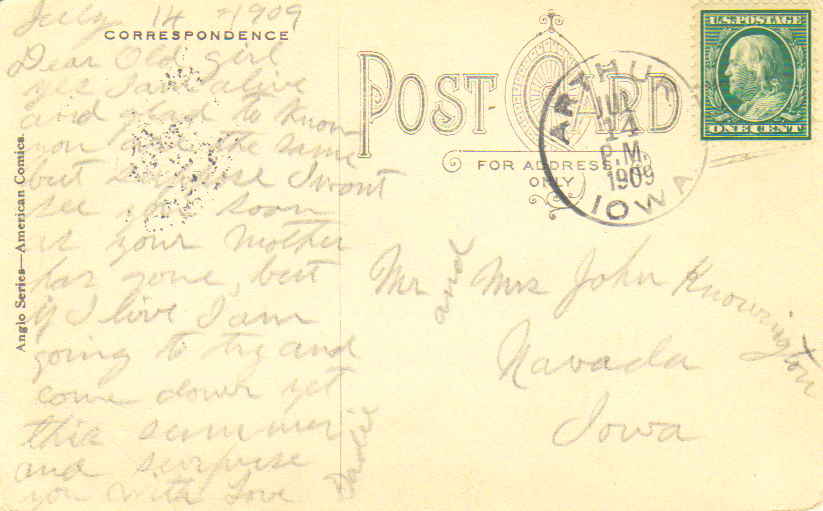 July 14 - 1909
CORRESPONDENCE
Dear Old girl
yes I am alive
and glad to know
you are the same
but suppose I wont
see you soon
as your mother
has gone, but
if I live I am
going to try and
come down yet
this summer
and surprise
you with Love
Anglo Series—American Comics.
POST CARD
FOR ADDRESS
ONLY
U.S. POSTAGE
ONE CENT
ARTHUR
JUL
14
P.M.
1909
IOWA
Mr and Mrs John Knowington
Navada
Iowa